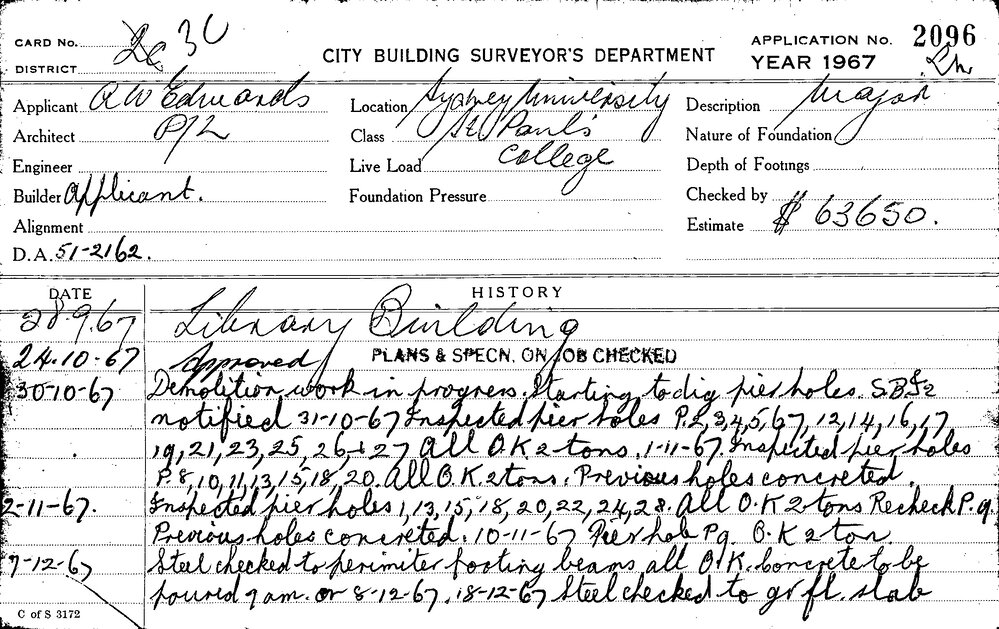 CARD No. 2c 3C
DISTRICT
CITY BUILDING SURVEYOR'S DEPARTMENT
APPLICATION No. 2096
YEAR 1967
Applicant R W Edwards
Architect P/L
Engineer
Builder Applicant.
Alignment
D.A. 51-2162.
Location Sydney University
Class St Paul's
Live Load College
Foundation Pressure
Description Major
Nature of Foundation
Depth of Footings
Checked by
Estimate $ 63650.
DATE HISTORY
28.9.67 Library Building
24.10-67 Approved PLANS & SPECN. ON JOB CHECKED
30-10-67 Demolition work in progress. Starting to dig pier holes. S.B.
notified 31-10-67 Inspected pier holes P.2,3,4,5,6,7,12,14,16,17
19,21,23,25,26+27 All O.K 2-tons. 1-11-67. Inspected pier holes
P.8,10,11,13,15,18,20. All O.K 2 tons. Previous holes concreted.
2-11-67. Inspected pier holes 1,13,15,18,20,22,24,28. All O.K 2-tons Recheck P.9.
Previous holes concreted. 10-11-67 Pier hole P9. O.K 2 ton
7-12-67 Steel checked to perimiter footing beams all O.K. Concrete to be
poured 9 am. on 8-12-67. 18-12-67 Steel checked to gr fl. slab
C of S 3172